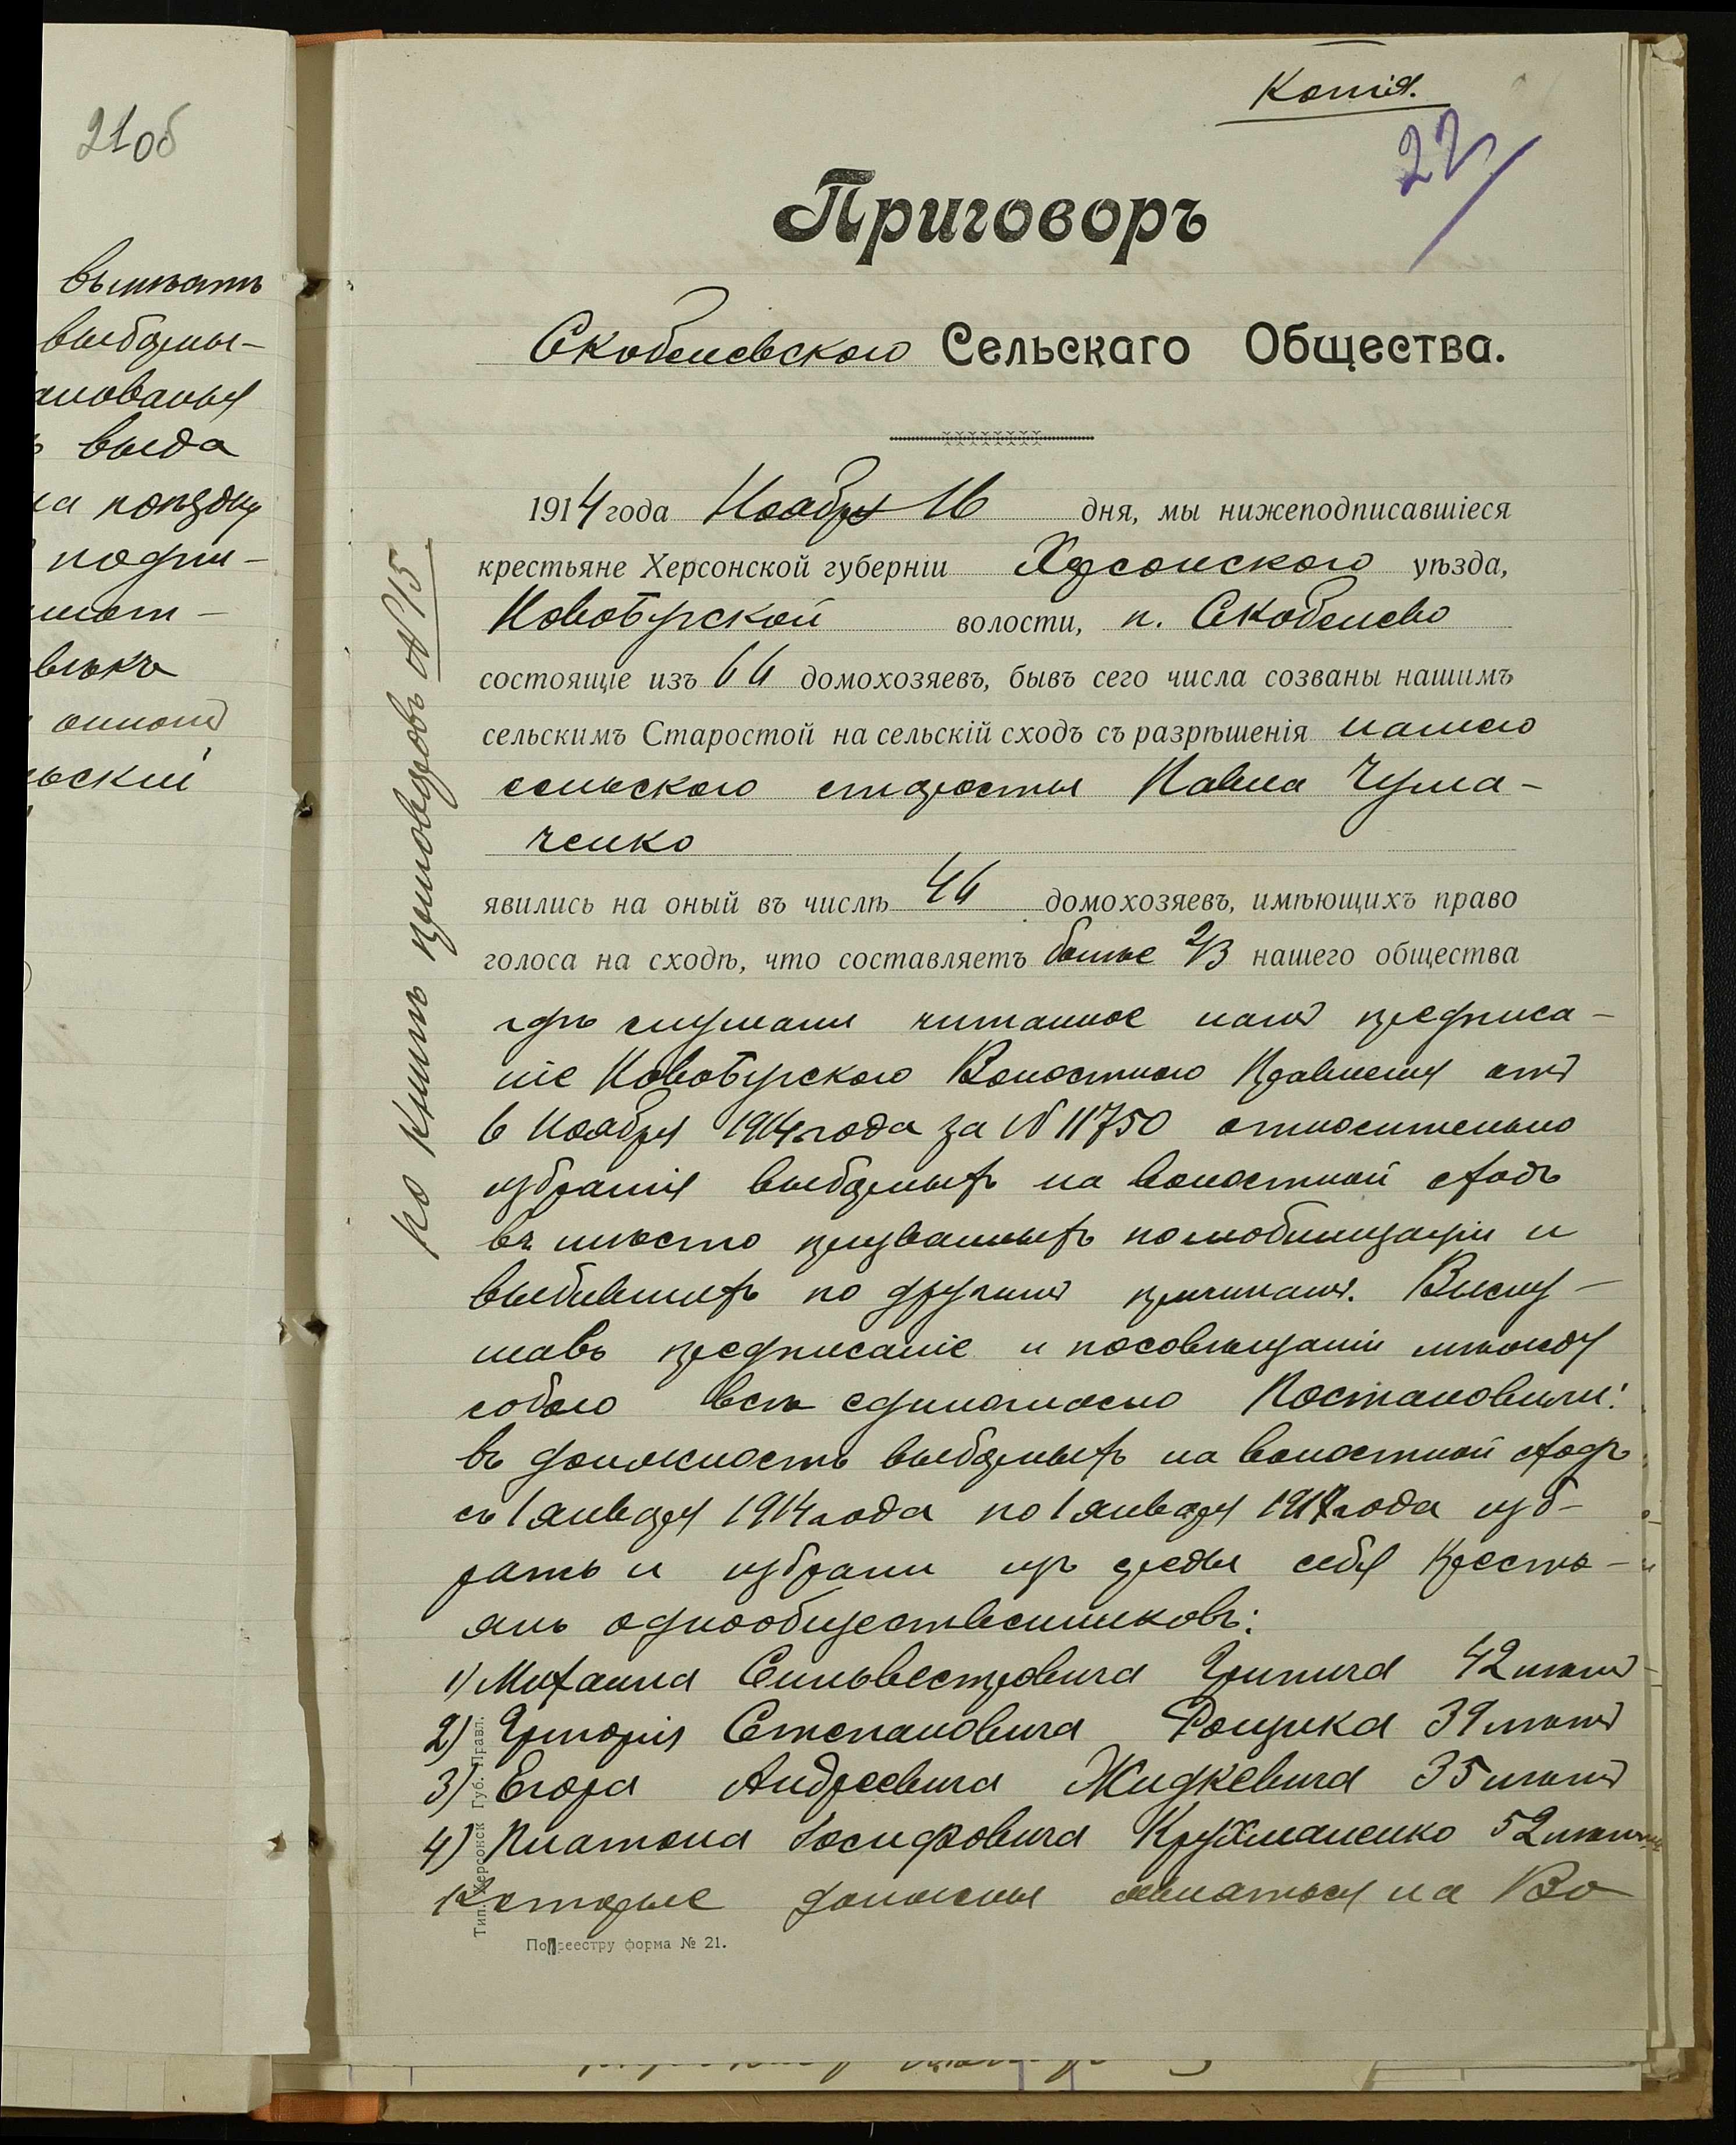 21об
вымѣать
выборны-
ь выда
на поѣзду
подпи-
Копія.
22
Приговоръ
Скобелевского Сельскаго Общества.
1914 года Ноабря 16 дня, мы нижеподписавшіеся
крестьяне Херсонской губерніи Херсонского уѣзда,
Новобугской волости, п. Скобелево
состоящіе изъ 66 домохозяевъ, бывъ сего числа созваны нашимъ
сельскимъ Старостой на сельскій сходъ съ разрѣшенія нашего
сельского старосты Павла Чума-
ченко
явились на оный въ числѣ 46 домохозяевъ, имѣющихъ право
голоса на сходѣ, что составляетъ более 2/3 нашего общества
гдѣ слушали читанное намъ предписа-
ніе Новобугского Волостного Правленія отъ
6 Ноября 1914 года за № 11750 относительно
избранія выборныхъ на волостной сходъ
въ мѣсто призванныхъ по мобилизаціи и
выбившихъ по другимъ причинамъ. Выслу-
шавъ предписаніе и посовѣщаніи между
собою всѣ единогласно Постановили:
въ должность выборныхъ на волостной сходъ
съ 1 января 1914 года по 1 января 1917 года изб-
рать и избрали изъ среды себя кресть-
янъ однообщественниковъ:
1) Михаила Сильвестровича Грипича 42 лѣтъ
2) Григорія Степановича Рощика 39 лѣтъ
3) Егора Андреевича Жидкевича 35 лѣтъ
4) Платона Іосифовича Крухмаленко 52 лѣтъ
Которые должны являться на Во
По реестру форма № 21.
Тип. Херсонск Губ. Правл.
По книгѣ приговоровъ № 15